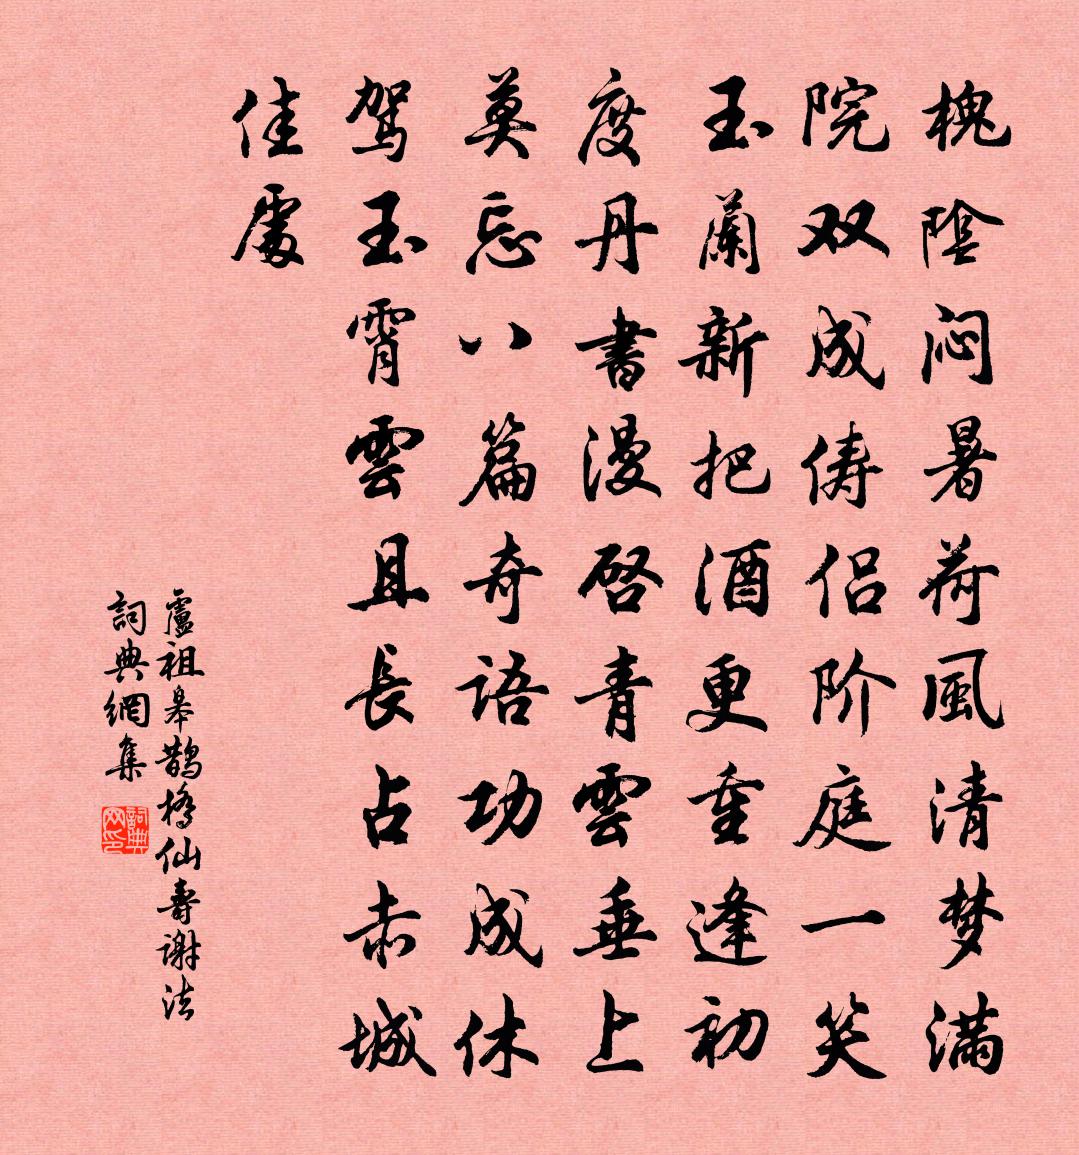 槐陰闷暑荷風清梦满
院双成俦侣阶庭一笑
玉蘭新把酒更重逢初
度丹書漫啓青雲垂上
莫忘八篇奇语功成休
驾玉霄雲且長占赤城
佳處
盧祖皋鹊橋仙壽谢法
詞典網集
詞典网印